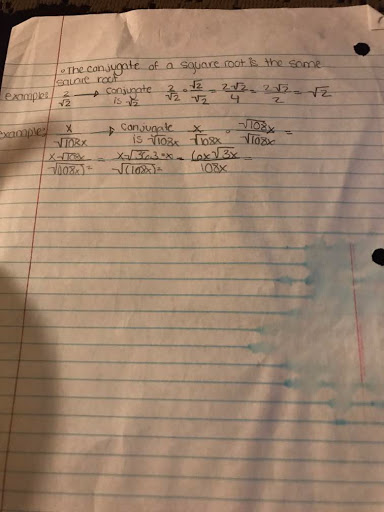 ◦ The conjugate of a square root is the same
square root
examples: 2/√2 → conjugate is √2 2/√2 ∘ √2/√2 = 2√2/4 = 2√2/2 = √2
example: x/√108x → conjugate is √108x x/√108x ∘ √108x/√108x =
x√108x/√(108x)² = x√36∘3∘x/√(108x)² = 6x√3x/108x =